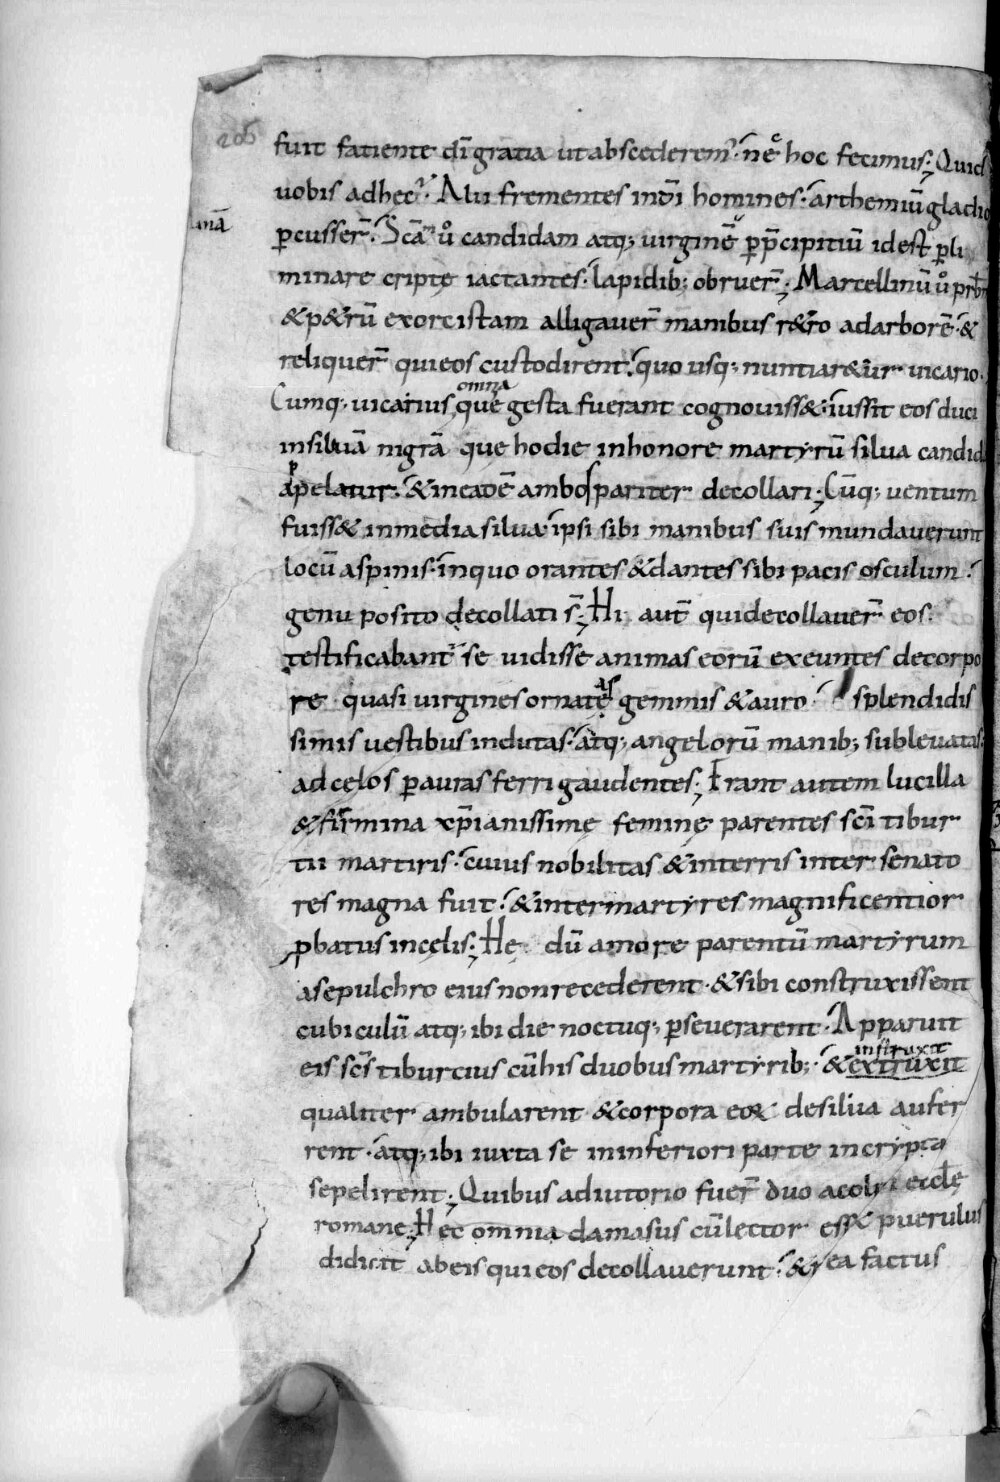 206
fuit fatiente dī gratia ut abscederem᷑. nē hoc fecimus; Quid
uobis adhec? Alii frementes inđi homines. arthemiū gladio
ꝑcusser̄. Sc̄a uͦ candidam atq; uirginē ꝑ p̄cipitiū id est ꝑ li
minare cripte iactantes. lapidib; obruer̄; Marcellinū uͦ prb̄m
&p&rū exorcistam alligauer̄ manibus r&ro ad arborē. &
reliquer̄ qui eos custodirent. quo usq; nuntiar&ur uicario.
Cumq; uicarius omnia quę gesta fuerant cognouiss&. iussit eos duci
in siluā nigrā que hodie in honore martyrū silua candid
appelatur. & in eadē ambos pariter decollari; Cūq; uentum
fuiss& in media silua. ipsi sibi manibus suis mundauerunt
locū a spinis. in quo orantes & dantes sibi pacis osculum.
genu posito decollati s̄; Hi aut̄ qui decollauer̄ eos.
testificabant᷑ se uidisse animas eorū exeuntes de corpo
re quasi uirgines ornatas gemmis & auro. splendidis
simis uestibus indutas. atq; angelorū manib; subleuatas.
ad celos ꝑ auras ferri gaudentes; Erant autem lucilla
& firmina xp̄ianissimę feminę parentes sc̄i tibur
tii martiris. cuius nobilitas & in terris inter senato
res magna fuit. & inter martyres magnificentior
ꝓbatus in cęlis; Hę dū amore parentū martyrum
a sepulchro eius non recederent. & sibi construxissent
cubiculū atq; ibi die noctuq; ꝑseuerarent. Apparuit
instruxit
eis sc̄s tiburcius cū his duobus martyrib; & extruxit
qualiter ambularent & corpora eoꝝ de silua aufer
rent. atq; ibi iuxta se in inferiori parte in crypta
sepelirent; Quibus adiutorio fuer̄ duo acoliti eccłę
romane; Hec omnia damasus cū lector esset puerulus
didicit ab eis qui eos decollauerunt. & rea factus